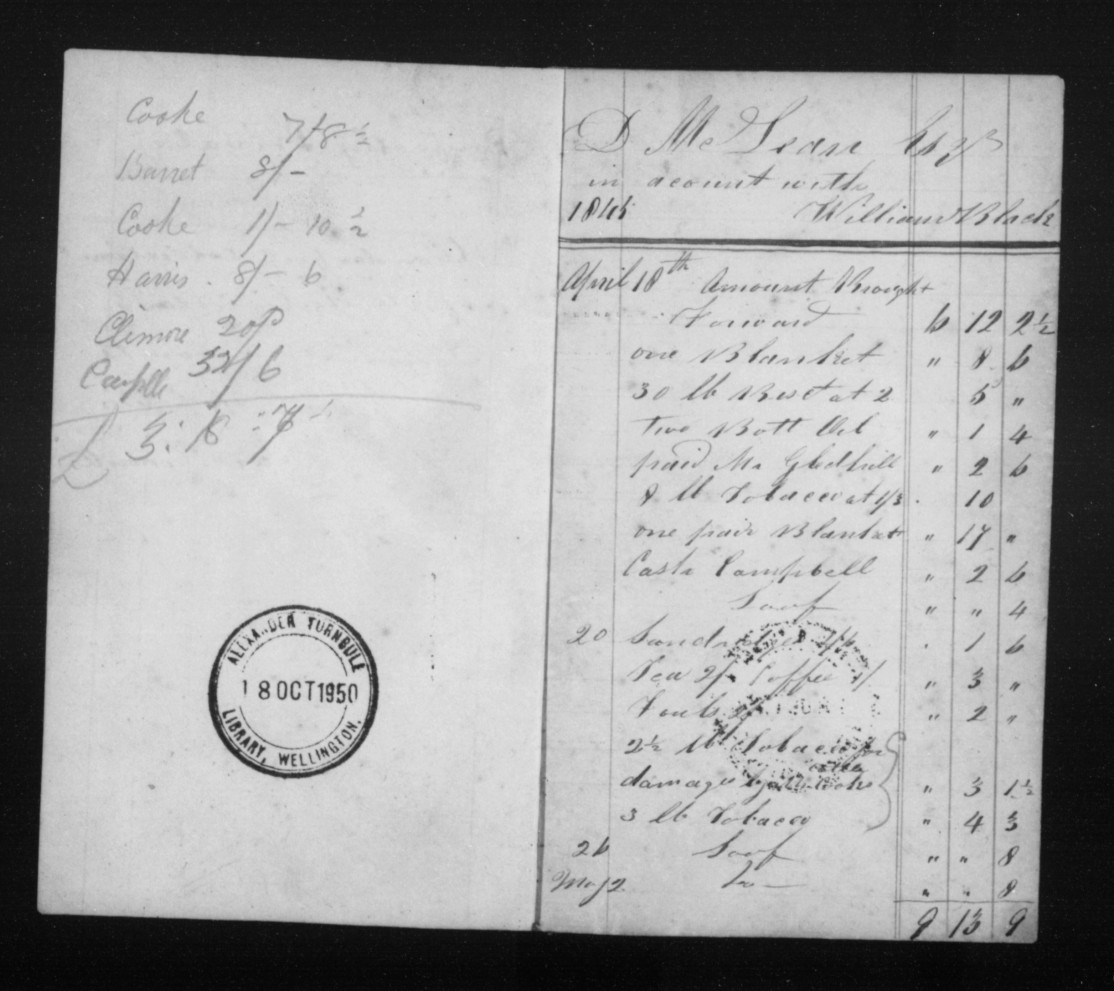 Cooke 7/8½
Barret 8/-
Cooke 1/- 10½
Harris . 8/- 6
Climore 20/
32/6
£ 3: 18 : 7
ALEXANDER TURNBULL
18 OCT 1950
LIBRARY, WELLINGTON.
D McLean Esqr
in acount with
1845 William Black
April 18th Amount Brought
Forward 6 12 2½
one Blanket " 8 6
30 lb at 2 5 "
two Bott " 1 4
paid Mr Gledhill " 2 6
8 lb Tobacco at 1/3 . 10
one pair Blankets " 17 "
Cash Campbell " 2 6
Loaf " " 4
20 Sundries 1/6 . 1 6
Tea 2/- Coffee 1/ " 3 "
" 2 "
2½ lb Tobacco for
damage " 3 1½
3 lb Tobacco " 4 3
26 Loaf " " 8
May 2 Do — " " 8
9 13 9